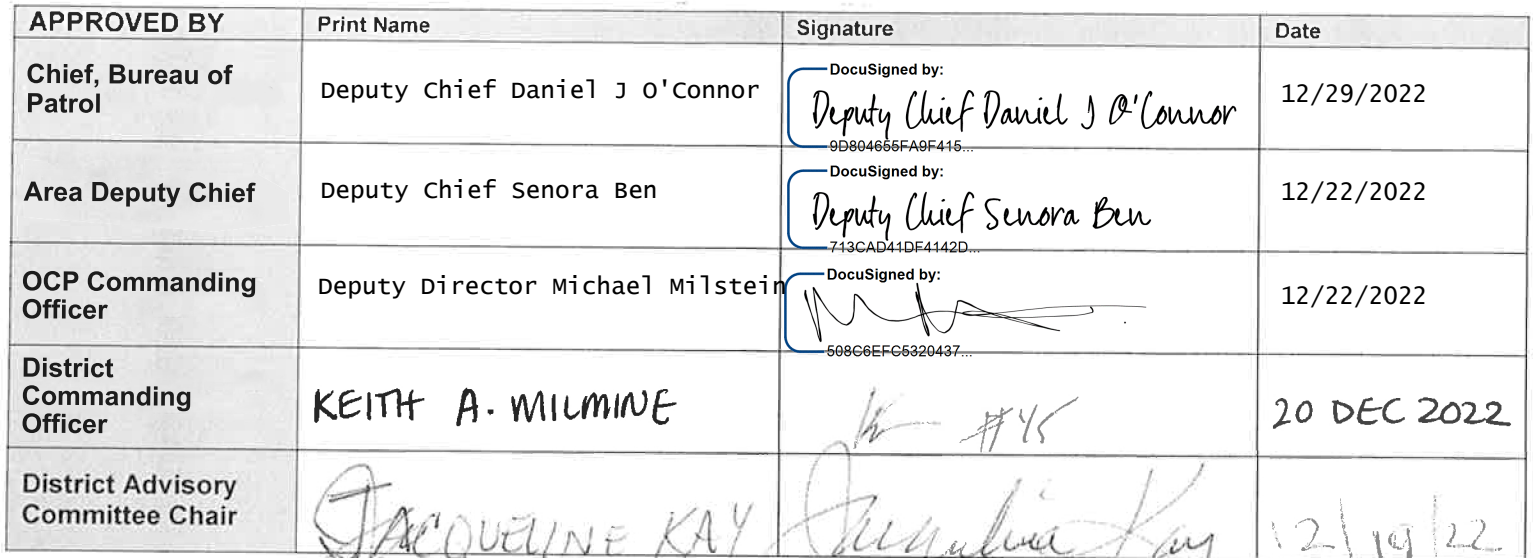 APPROVED BY Print Name Signature Date
Chief, Bureau of
Patrol
Deputy Chief Daniel J O'Connor
DocuSigned by:
Deputy Chief Daniel J O'Connor
9D804655FA9F415...
12/29/2022
Area Deputy Chief
Deputy Chief Senora Ben
DocuSigned by:
Deputy Chief Senora Ben
713CAD41DF4142D...
12/22/2022
OCP Commanding
Officer
Deputy Director Michael Milstein
DocuSigned by:
508C6EFC5320437...
12/22/2022
District
Commanding
Officer
KEITH A. MILMINE
#45
20 DEC 2022
District Advisory
Committee Chair
JACQUELINE KAY
Jacqueline Kay
12/19/22